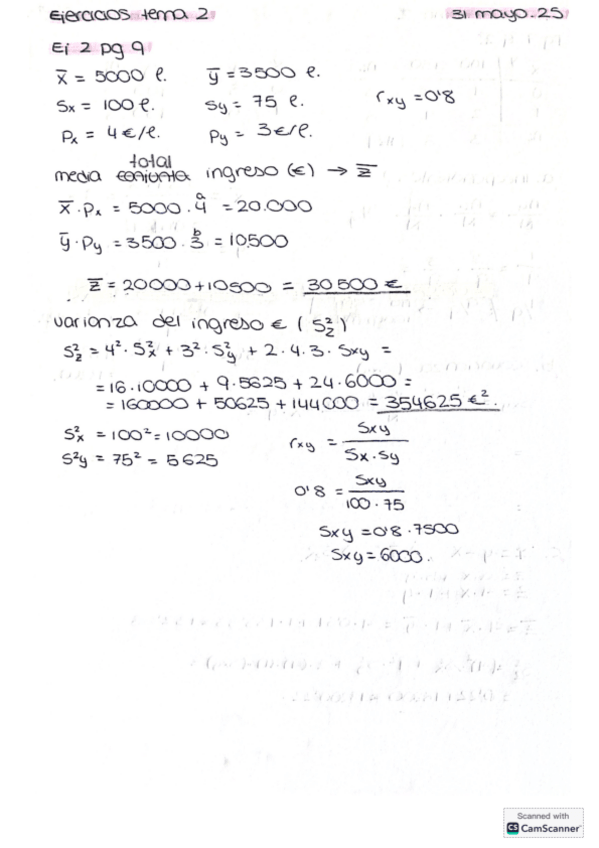 Ejercicios tema 2 31 mayo.25
Ej 2 pg 9
x̄ = 5000 l. ȳ = 3500 l.
Sx = 100 l. Sy = 75 l. rxy = 0'8
Px = 4€/l. Py = 3€/l.
total
media conjunta ingreso (€) → z̄
x̄·Px = 5000 · 4 = 20.000
a
ȳ·Py = 3500 · 3 = 10.500
b
z̄ = 20000 + 10500 = 30500 €
varianza del ingreso € (S²z)
S²z = 4²·S²x + 3²·S²y + 2·4·3·Sxy =
= 16·10000 + 9·5625 + 24·6000 =
= 160000 + 50625 + 144000 = 354625 €².
S²x = 100² = 10000
S²y = 75² = 5625
rxy = Sxy / Sx·Sy
0'8 = Sxy / 100·75
Sxy = 0'8·7500
Sxy = 6000.
Scanned with
CS CamScanner